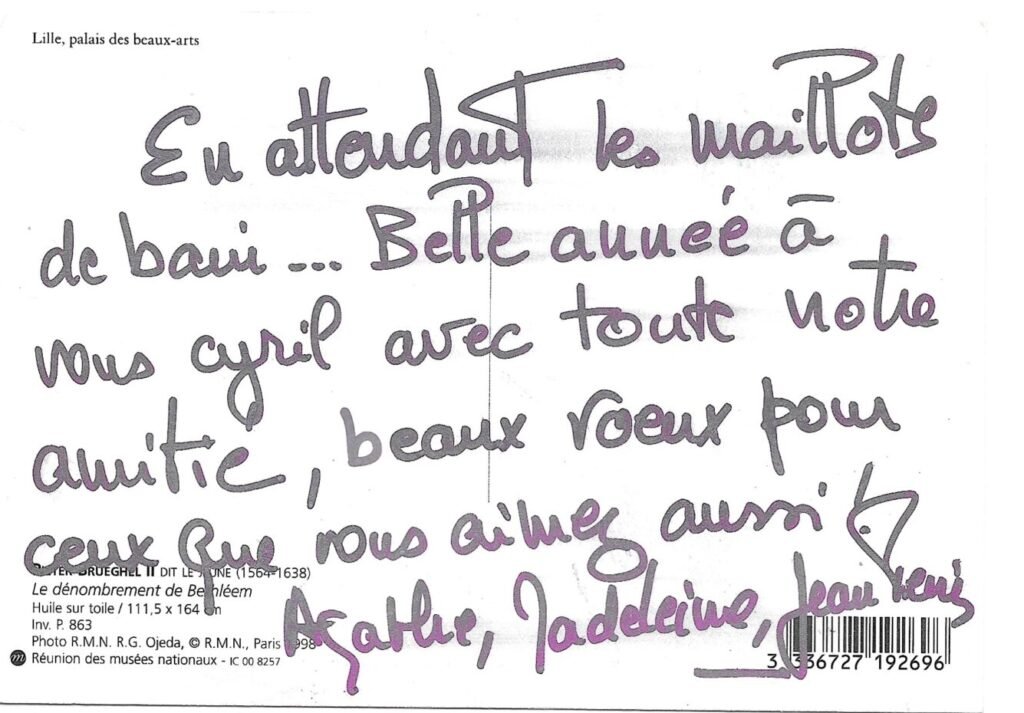 Lille, palais des beaux-arts
En attendant les maillots
de bain ... Belle année à
vous cyril avec toute notre
amitié, beaux voeux pour
ceux que vous aimez aussi !
PIETER BRUEGHEL II DIT LE JEUNE (1564-1638)
Le dénombrement de Bethléem
Huile sur toile / 111,5 x 164 cm
Inv. P. 863
Photo R.M.N. R.G. Ojeda, © R.M.N., Paris 1998
Réunion des musées nationaux - IC 00 8257
Agathe, Madeleine, Jean
3 336727 192696